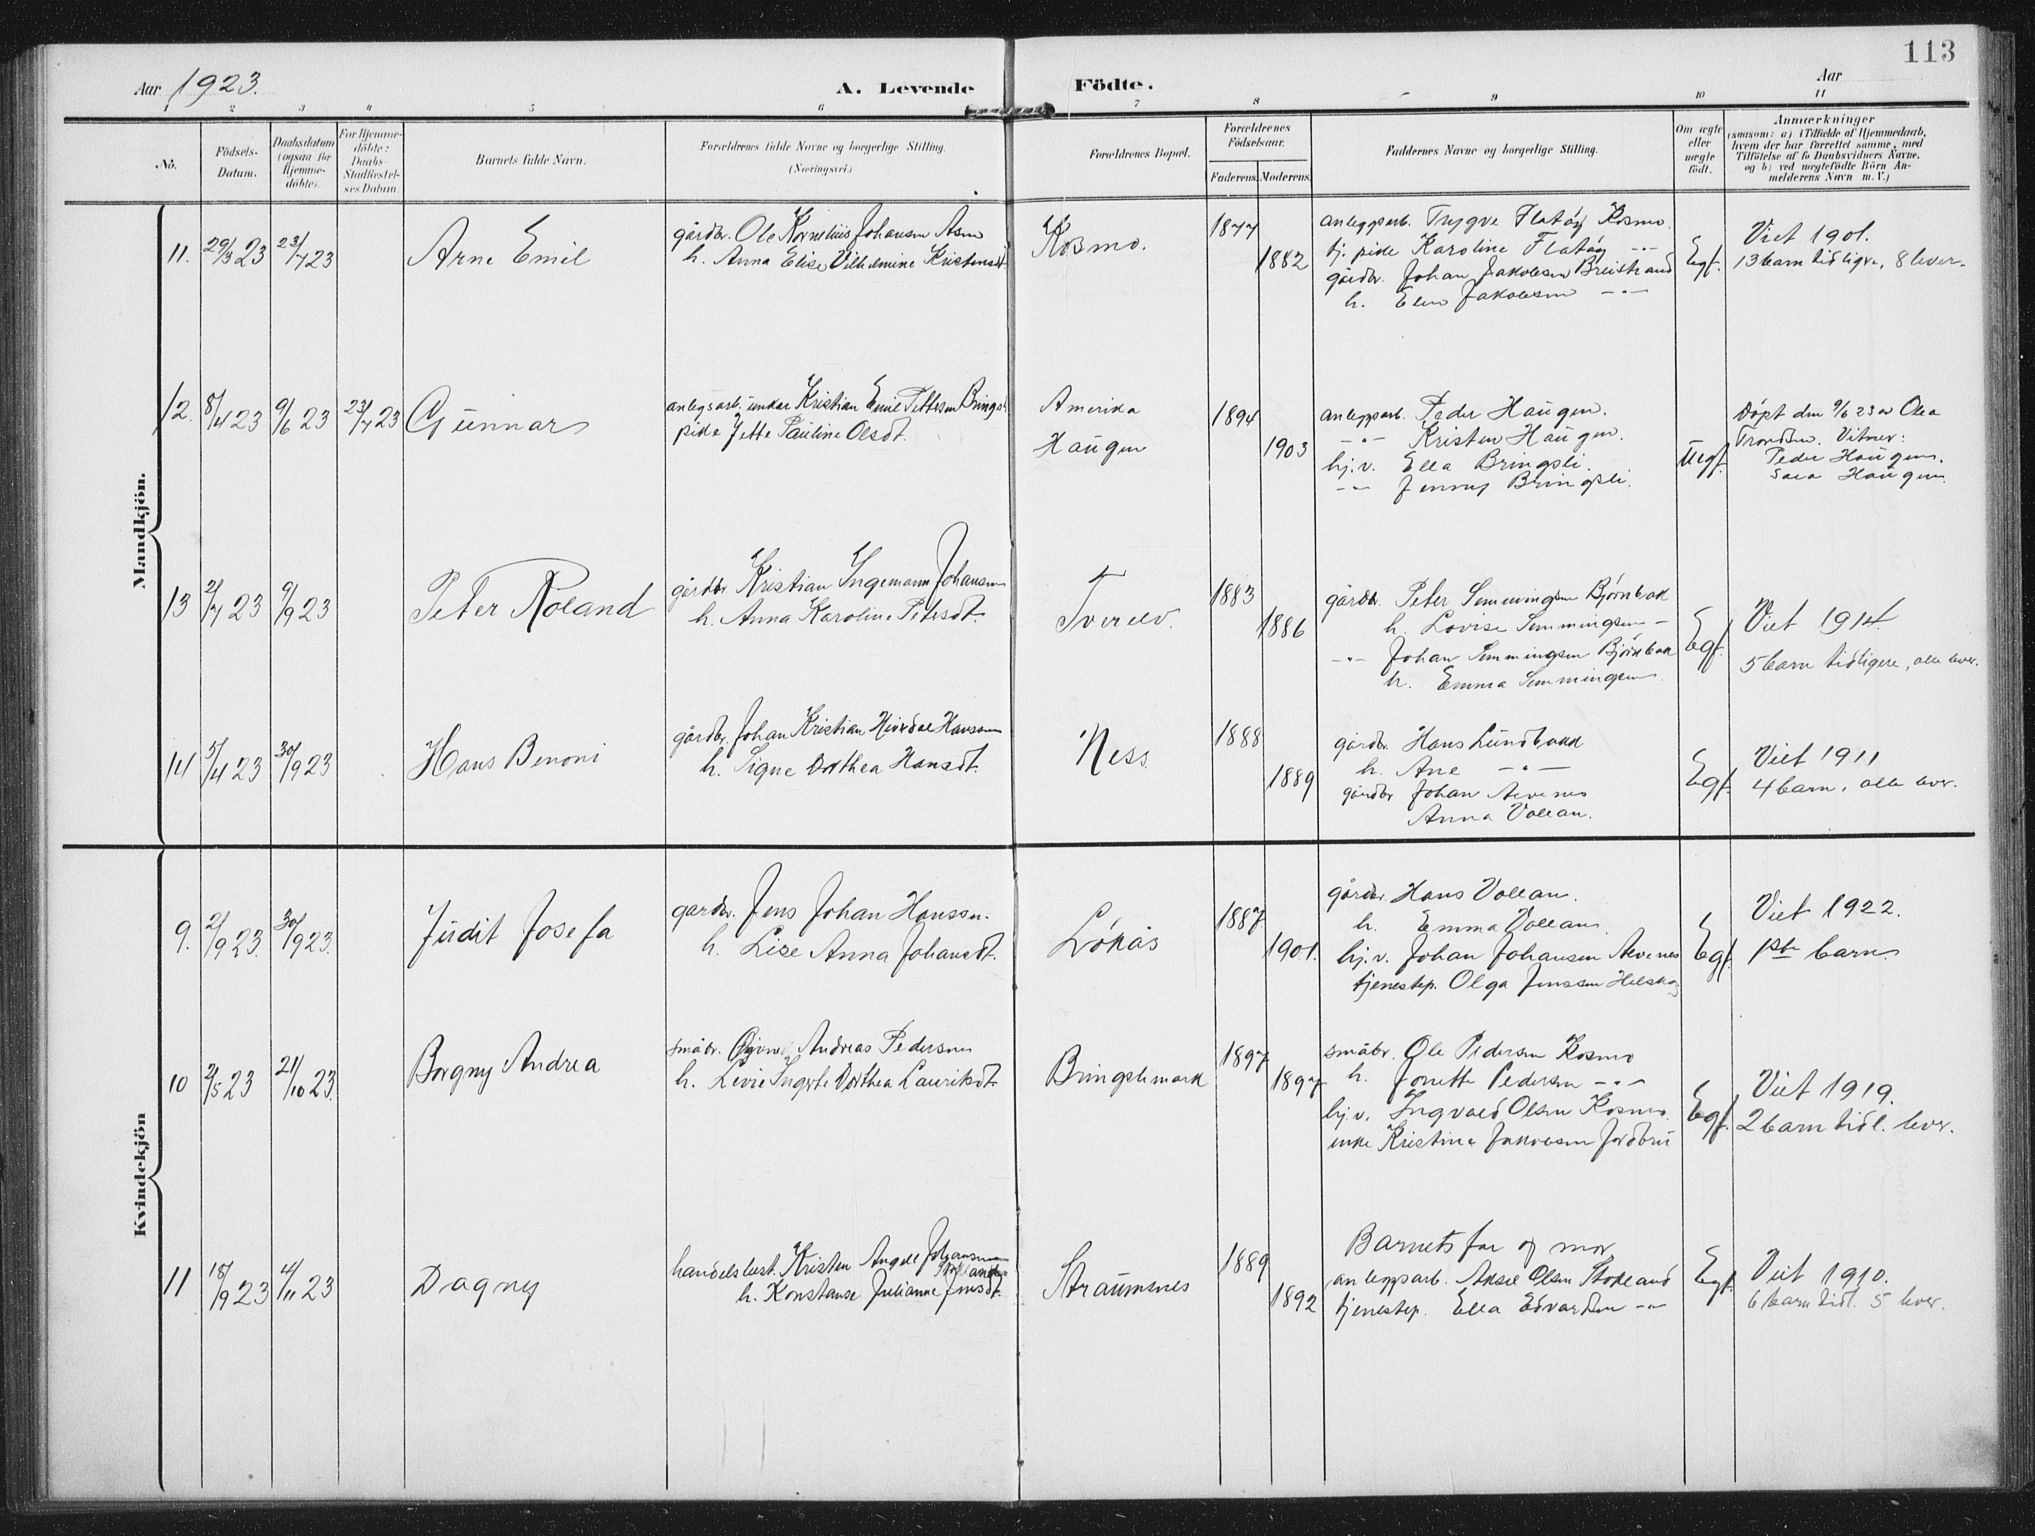 113
Aar 1923.
A. Levende Födte.
Aar
1 2 3 4 5 6 7 8 9 10 11
No.
Födsels-
Datum.
Daabsdatum
(ogsaa for
Hjemme-
döbte).
For Hjemme-
döbte:
Daabs-
Stadfæstel-
ses Datum.
Barnets fulde Navn.
Forældrenes fulde Navne og borgerlige Stilling.
(Næringsvei.)
Forældrenes Bopæl.
Forældrenes
Födselsaar.
Faderens. Moderens.
Faddernes Navne og borgerlige Stilling.
Om ægte
eller
uægte
födt.
Anmærkninger
(saasom: a) i Tilfælde af Hjemmedaab,
hvem der har forrettet samme, med
Tilföielse af to Daabsvidners Navne,
og b) ved uægtefödte Börn An-
melderens Navn m. V.)
Mandkjön.
11. 29/3 23 23/7 23 Arne Emil
gårdbr. Ole Kornelius Johansen Asm
h. Anna Elise Vilhelmine Kristensdt.
Kosmo.
1877
1882
anleggsarb. Trygve Flatøy Kosmo.
tj. pike Karoline Flatøy -"-
gårdbr. Johan Jakobsen Breistrand
h. Elen Jakobsen -"-
Egf.
Viet 1901.
13 barn tidligere, 8 lever.
12. 8/4 23 9/6 23 23/7 23 Gunnar
anlegsarb. unkar Kristian Emil Pettersen Bringsl.
pike Jette Pauline Olsdt.
Amerika
Haugen
1894
1903
anleggsarb. Peder Haugen.
-"- Kristen Haugen.
hj.v. Ella Bringsli.
-"- Jenny Bringsli.
Uegf.
Døpt den 9/6 23 av Olea
Trondsen. Vitner:
Peder Haugen.
Sara Haugen
13 2/7 23 9/9 23 Peter Roland
gårdbr Kristian Ingemann Johansen
h. Anna Karoline Petersdt.
Tverelv.
1883
1886
gårdbr. Peter Semmingsen Bjørnbak
h. Lovise Semmingsen -
-"- Johan Semmingsen Bjørnbak
h. Emma Semmingsen
Egf.
Viet 1914
5 barn tidligere, alle lever.
14 5/4 23 30/9 23 Hans Benoni
gårdbr. Johan Kristian Hansen
h. Signe Dorthea Hansdt.
Ness.
1888
1889
gårdbr. Hans Lundbakk
h. Ane -"-
gårdbr Johan Alvenes
Anna Vollan.
Egf.
Viet 1911
4 barn, alle lever.
Kvindekjön
9. 2/9 23. 30/9 23. Judit Josefa
gårdbr. Jens Johan Hanssen.
h. Lise Anna Johansdt.
Løkås
1887.
1901.
gårdbr. Hans Vollan.
h. Emma Vollan.
hj.v. Johan Johansen Alvenes
tjenestep. Olga Jenssen
Egf.
Viet 1922.
1ste barn.
10 2/5 23 21/10 23. Borgny Andrea
småbr. Andreas Pedersen
h. Dorthea Lauritsdt.
Bringslimark
1897
1897
småbr. Ole Pedersen Kosmo
h. Jonette Pedersen -"-
hj.v. Ingvald Olsen Kosmo.
unke Kristina Jakobsen Jordbru
Egf.
Viet 1919.
2 barn tidl. lever.
11 18/9 23 4/11 23 Dagny
handelsbest. Kristen Angell Johansen
Stokland
h. Konstanse Julianne Jensdt.
Straumsnes
1889
1892
Barnets far og mor
anleggsarb. Aksel Olsen Stokland
tjenestep. Ella Edvardsen -"-
Egf.
Viet 1910.
6 barn tidl. 5 lever.